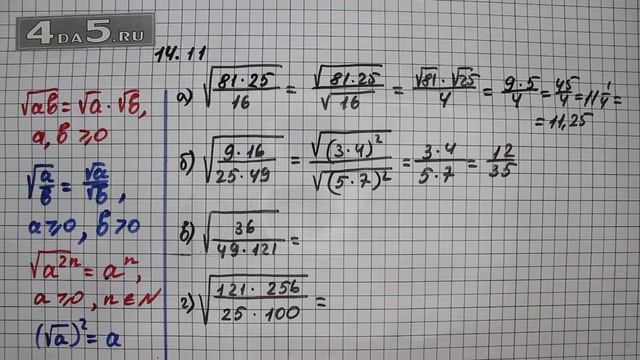 4DA5.RU
14.11
√ab = √a · √b,
a, b ⩾ 0
√(a/b) = √a/√b,
a ⩾ 0, b > 0
√(a²ⁿ) = aⁿ,
a ⩾ 0, n ∈ N
(√a)² = a
а) √(81·25/16) = √(81·25)/√16 = √81·√25/4 = 9·5/4 = 45/4 = 11 1/4 =
= 11,25
б) √(9·16/25·49) = √(3·4)²/√(5·7)² = 3·4/5·7 = 12/35
в) √(36/49·121) =
г) √(121·256/25·100) =